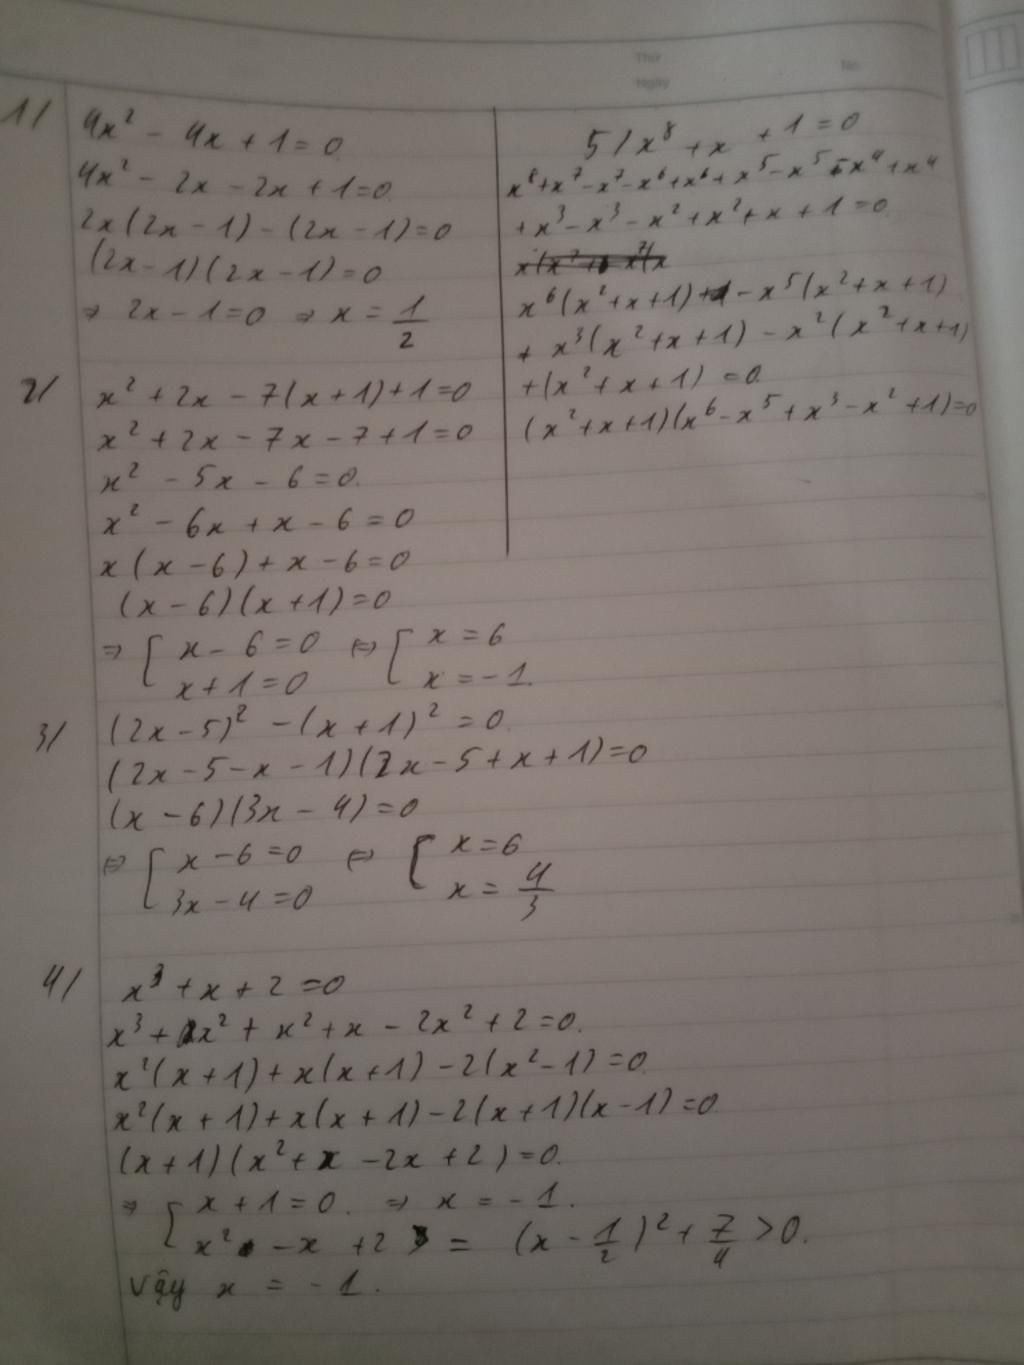 Thứ
Ngày
No.
1/ 4x² - 4x + 1 = 0
4x² - 2x - 2x + 1 = 0
2x(2x - 1) - (2x - 1) = 0
(2x - 1)(2x - 1) = 0
⇒ 2x - 1 = 0 ⇒ x = 1/2
2/ x² + 2x - 7(x + 1) + 1 = 0
x² + 2x - 7x - 7 + 1 = 0
x² - 5x - 6 = 0.
x² - 6x + x - 6 = 0
x(x - 6) + x - 6 = 0
(x - 6)(x + 1) = 0
⇒ [ x - 6 = 0 ⇔ [ x = 6
x + 1 = 0 x = -1.
3/ (2x - 5)² - (x + 1)² = 0.
(2x - 5 - x - 1)(2x - 5 + x + 1) = 0
(x - 6)(3x - 4) = 0
⇔ [ x - 6 = 0 ⇔ [ x = 6
3x - 4 = 0 x = 4/3
4/ x³ + x + 2 = 0
x³ + x² + x² + x - 2x² + 2 = 0.
x²(x + 1) + x(x + 1) - 2(x² - 1) = 0
x²(x + 1) + x(x + 1) - 2(x + 1)(x - 1) = 0
(x + 1)(x² + x - 2x + 2) = 0.
⇒ [ x + 1 = 0. ⇒ x = -1.
x² - x + 2 = (x - 1/2)² + 7/4 > 0.
Vậy x = -1.
5/ x⁸ + x + 1 = 0
x⁸ + x⁷ - x⁷ - x⁶ + x⁶ + x⁵ - x⁵ - x⁴ + x⁴
+ x³ - x³ - x² + x² + x + 1 = 0
x⁶(x² + x + 1) - x⁵(x² + x + 1)
+ x³(x² + x + 1) - x²(x² + x + 1)
+ (x² + x + 1) = 0
(x² + x + 1)(x⁶ - x⁵ + x³ - x² + 1) = 0